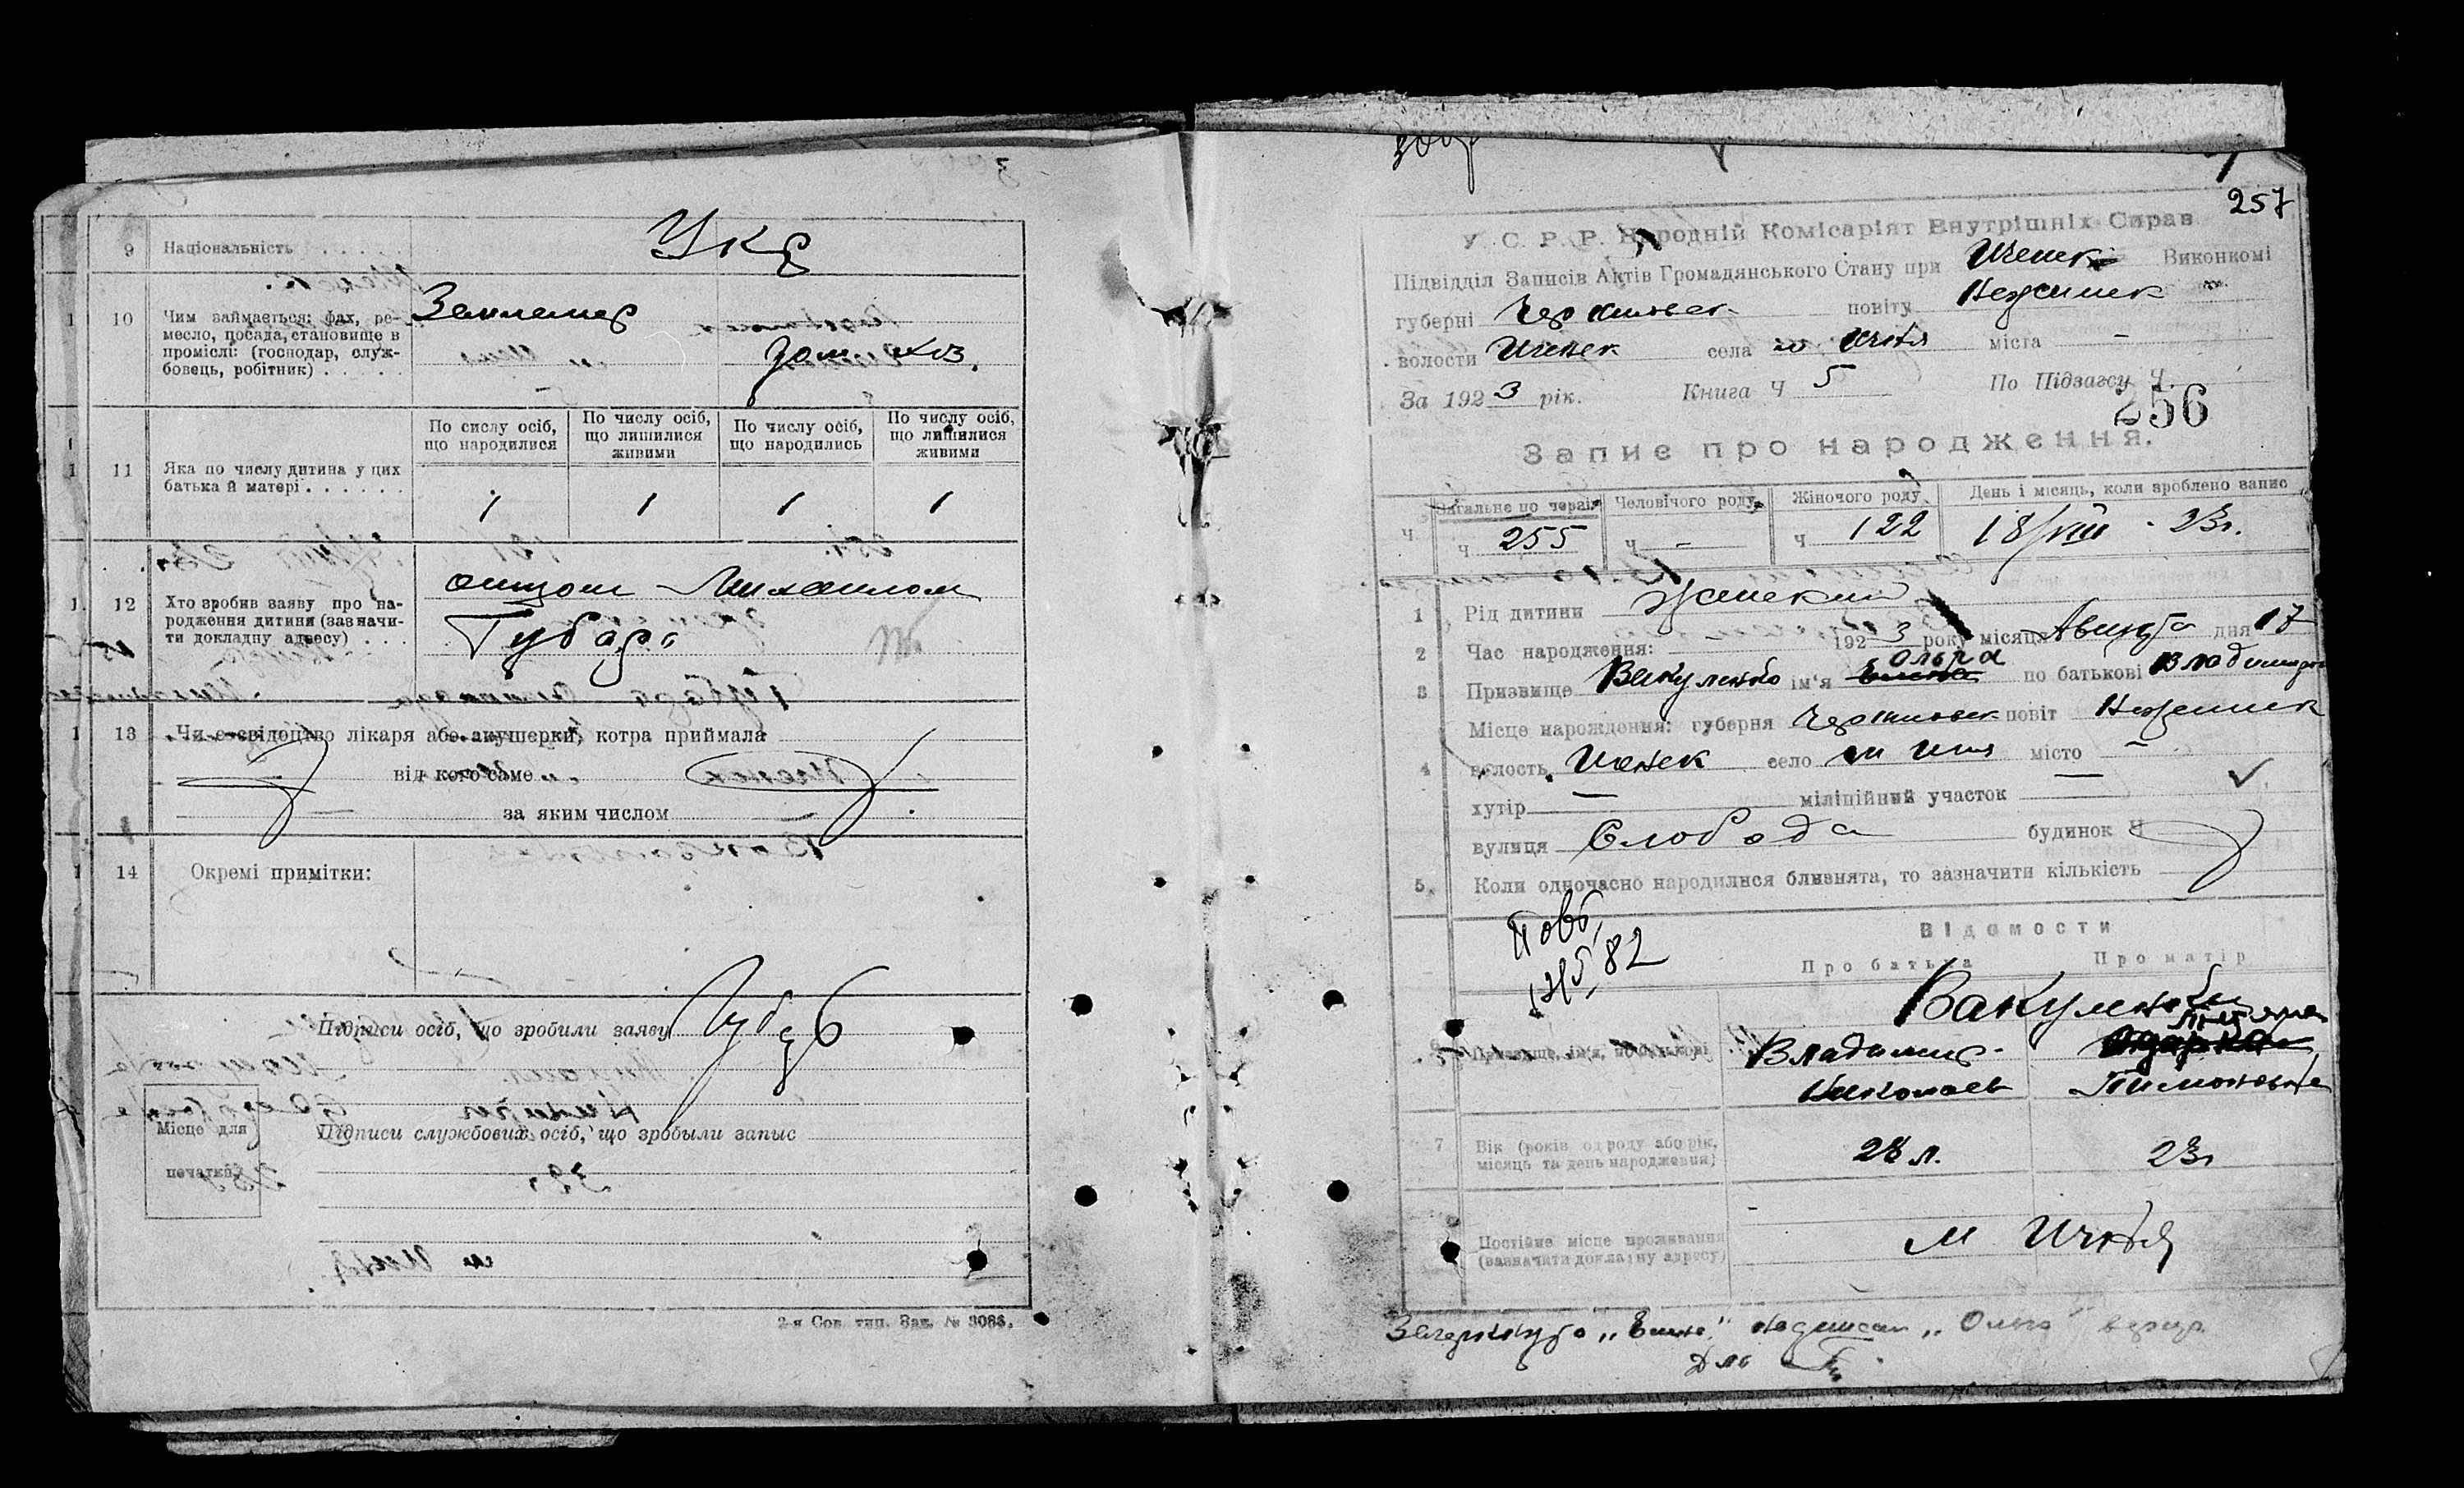 9 Національність . . . . Укр
10 Чим займається: фах, ре-
месло, посада, становище в
промислі: (господар, служ-
бовець, робітник) . . . . .
Землемер
дом. хоз.
По сислу осіб, що народилися
По числу осіб, що лишилися живими
По числу осіб, що народились
По числу осіб, що лишилися живими
11 Яка по числу дитина у цих
батька й матері . . . . . .
1 1 1 1
12 Хто зробив заяву про на-
родження дитини (зазначи-
ти докладну адресу) . . .
отцом Михаилом
Губарь
13 Чи є свідоцтво лікаря або акушерки, котра приймала
від кого саме
за яким числом
14 Окремі примітки:
Підписи осіб, що зробили заяву
Місце для
печатки
Підписи службових осіб, що зробыли запыс
2-я Сов. тип. Зак. № 3086.
257
У. С. Р. Р. Народній Комісаріят Внутрішніх Справ
Підвідділ Записів Актів Громадянського Стану при Ичнек Виконкомі
губерні Черниговск повіту Нежинск
волости Иченск села м Ичня міста –
За 1923 рік. Книга Ч 5 По Підзагсу Ч.
256
Запис про народження.
Загальне по черзі Человічого роду Жіночого роду День і місяць, коли зроблено запис
ч 255 ч – ч 122 18/VIII - 23г.
1 Рід дитини Женский
2 Час народження: 1923 року місяця Августа дня 17
3 Призвище Вакуленко ім'я Елена Ольга по батькові Владимиров
Місце народження: губерня Черниговск повіт Нежинск
4 волость Иченск село м Ичня місто –
хутір – міліційний участок –
вулиця Слобода будинок Ч
5. Коли одночасно народилися близнята, то зазначити кількість
Повт.
12/5, 82
Відомости
Про батька Про матір
Вакуленко
Призвище, ім'я, по батькові
Владимир Одарка
Николаев Тимоновна
7 Вік (років од роду або рік,
місяць та день народження) 28 л. 23г
Постійне місце проживання
(зазначити докладну адресу) м Ичня
Зачеркнуто „Елена" надписан „Ольга"